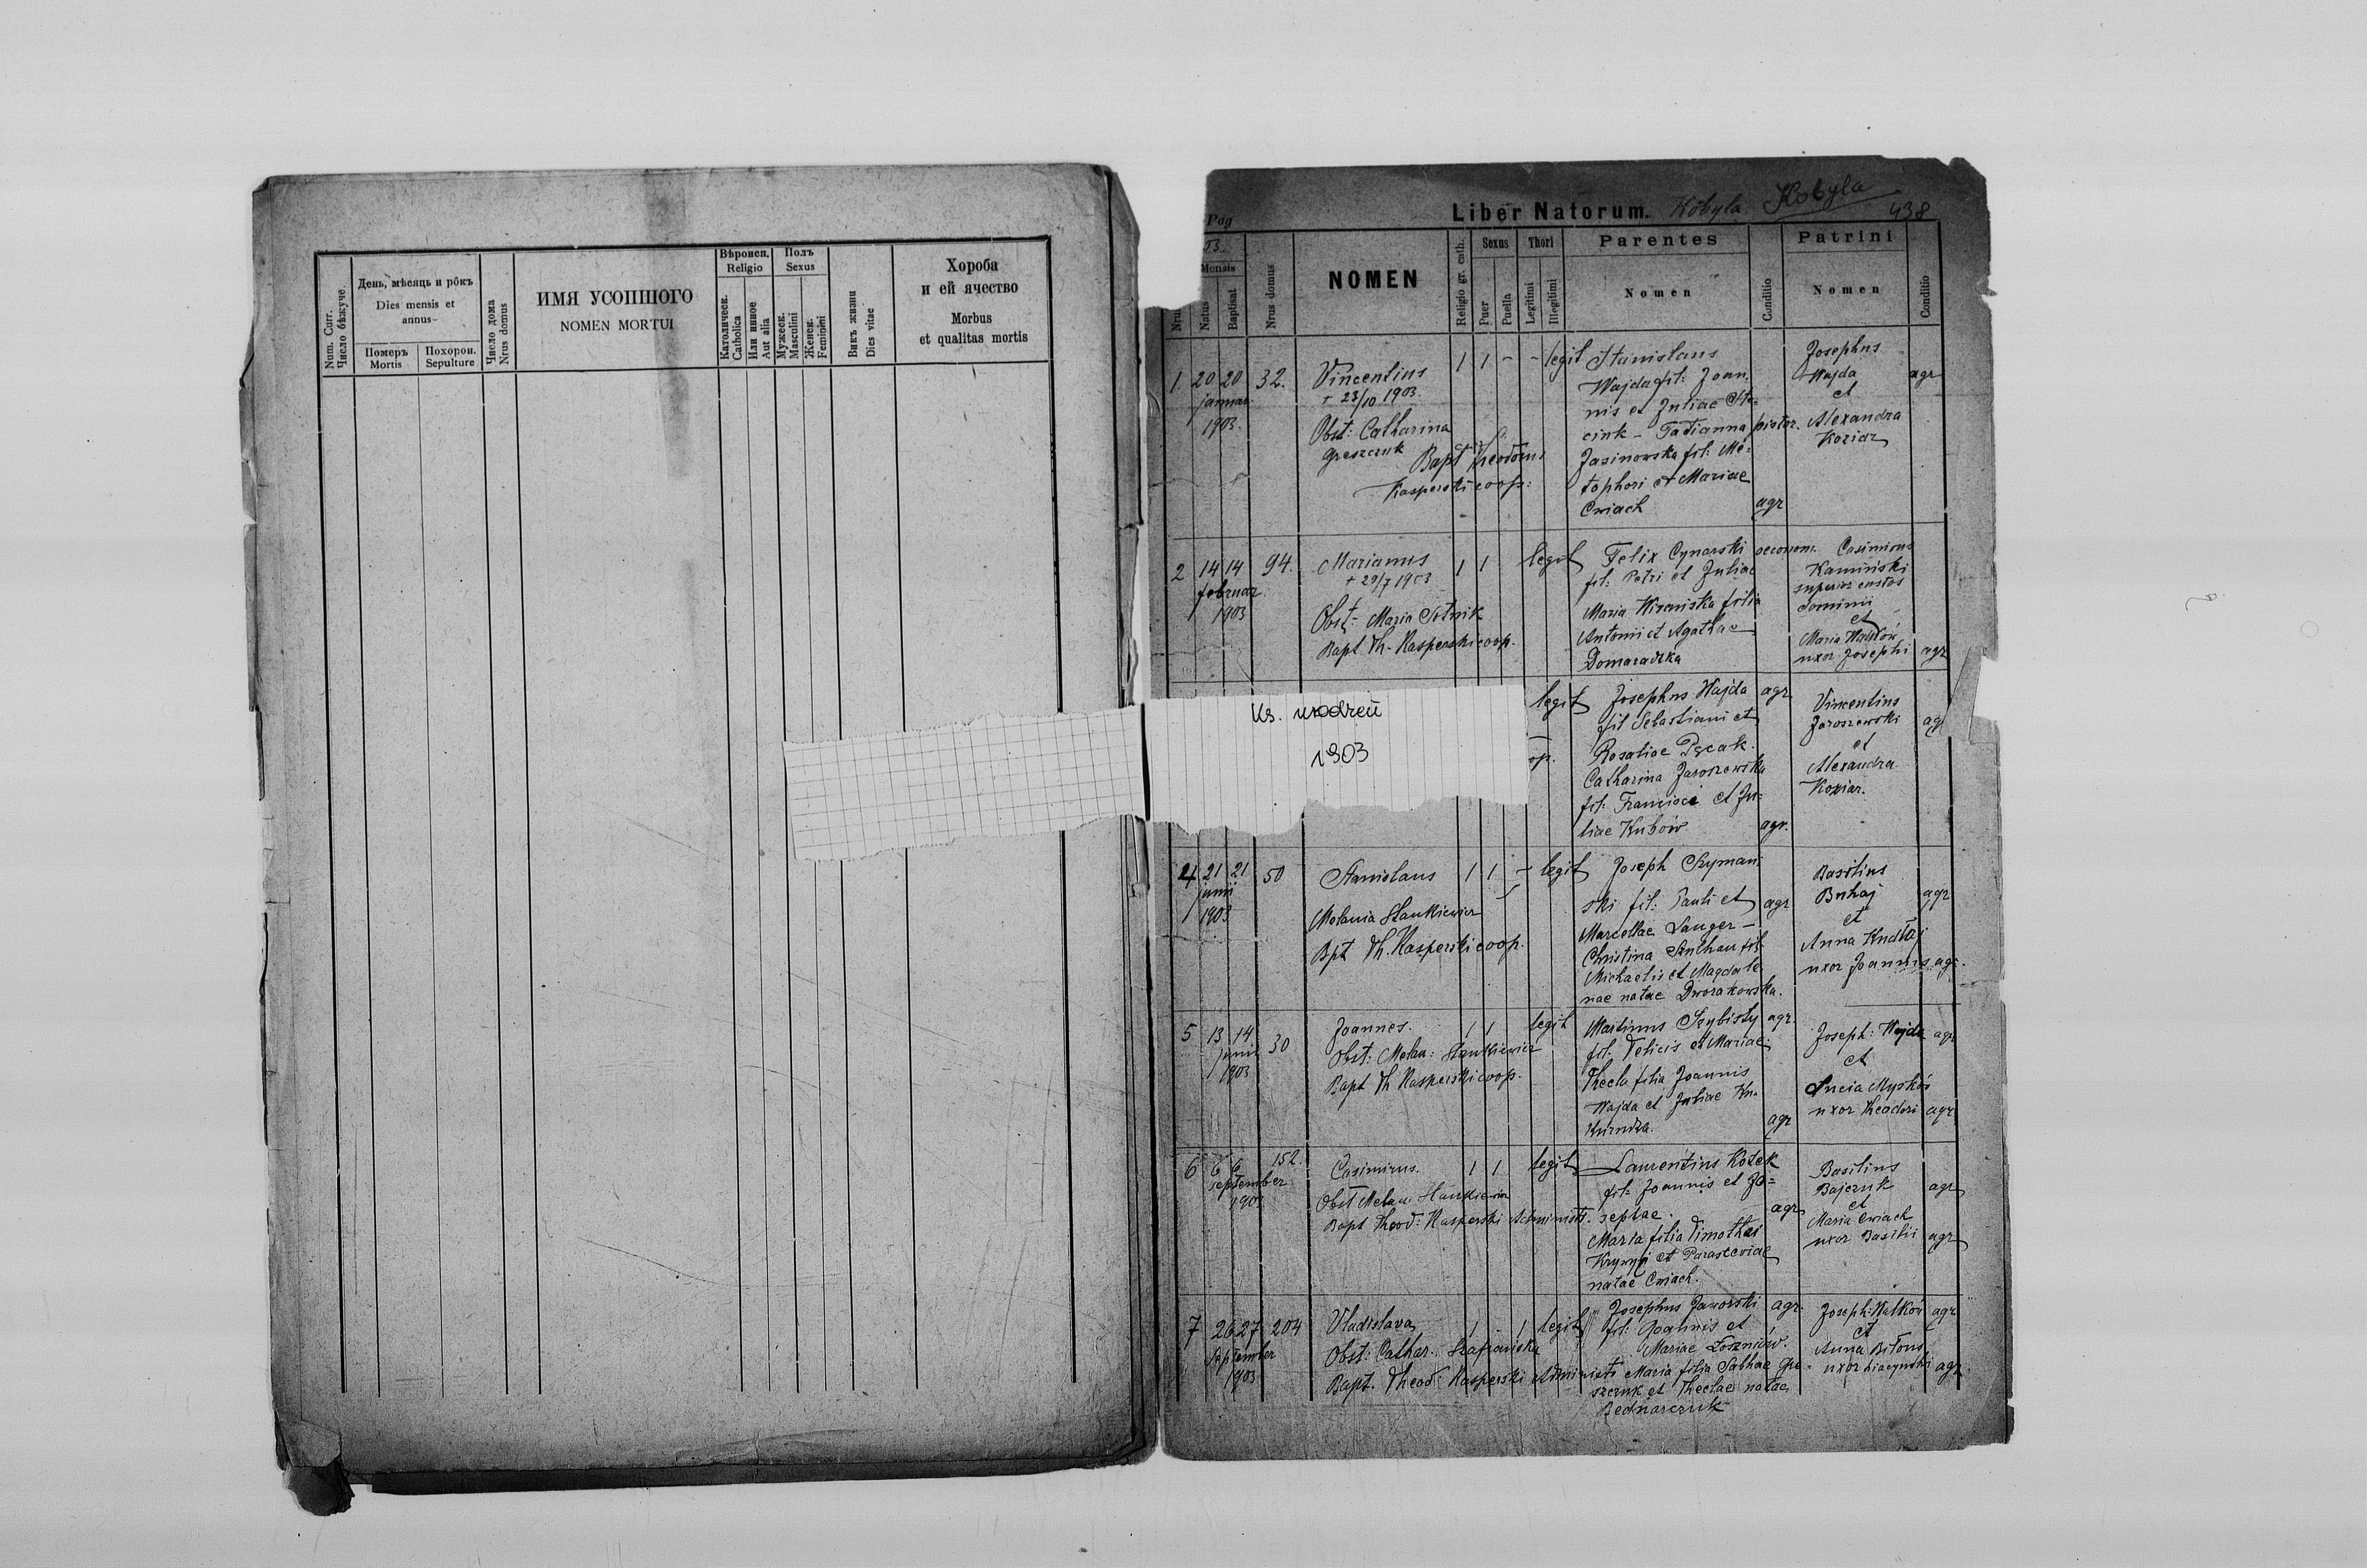 Num. Curr.
Число бѣжуче
День, мѣсяць и рôкъ
Dies mensis et
annus
Померъ
Mortis
Похорон.
Sepulture
Число дома
Nrus domus
ИМЯ УСОПШОГО
NOMEN MORTUI
Вѣроисп.
Religio
Католическ.
Catholica
Или инное
Aut alia
Полъ
Sexus
Мужеск.
Masculini
Женск.
Feminini
Викъ жизни
Dies vitae
Хороба
и ей ячество
Morbus
et qualitas mortis
Pag
Liber Natorum. Kobyla Kobyla
438
03.
Mensis
Natus
Baptisat
Nrus domus
NOMEN
Religio gr. cath.
Sexus
Puer
Puella
Thori
Legitimi
Illegitimi
Parentes
Nomen
Conditio
Patrini
Nomen
Conditio
1. 20 20 32.
januar.
1903.
Vincentius
+ 23/10 1903.
Obst: Catharina
Greszczuk
Bapt Theodorus
Kasperski coop:
1 1 - - legit
Stanislaus
Wajda fil: Joan.
nis et Juliae Ste=
cink - Tatianna pistor.
Jasinowska fil: Me=
tophori et Mariae
Cwiach agr
Josephus
Wajda agr
et
Alexandra
Koziar
2 14 14 94.
februar.
1903
Marianus
+ 29/7 1903
Obst: Maria Sotnik
Bapt Th. Kasperski coop.
1 1 legit
Felix Cynarski oeconom.
fil: Petri et Juliae
Maria filia
Antonii et Agathae
Domaradzka
Casimirus
Kamiński
superior custos
dominii
et
Maria
uxor Josephi agr
Ks. urodzeń
1903
op.
legit
Josephus Wajda agr
fil Sebastiani et
Rosaliae Pęcak.
Catharina Jaroszewska
fil: Francisci et Ju=
liae Kubów agr.
Vincentius
Jaroszewski ag
et
Alexandra
Koziar.
4 21 21 50
junii
1903
Stanislaus
Melania Stankiewicz
Bpt Th. Kasperski coop.
1 1 - legit
Joseph Szyman
ski fil: Pauli et agr
Marcellae Langer -
Christina fil
Michaelis et Magdale
nae natae Dworakowska.
Basilius
Buhaj agr
et
Anna Kudłaj
uxor Joannis agr.
5 13 14 30
junii
1903
Joannes.
Obst: Melan: Stankiewicz
Bapt Th Kasperski coop.
1 1 legit
Martinus Szybisty agr.
fil. Felicis et Mariae
Thecla filia Joannis
Wajda et Juliae Ku.
agr
Joseph: Wajda agr
et
Lucia Myśków
uxor Theodori agr
6 6 6 152.
september
1903
Casimirus.
Obst Melan: Stankiewicz
Bapt Theod: Kasperski Administr.
1 1 legit
Laurentius Kotek
fil: Joannis et Jo=
sephae. agr
Maria filia Timothei
Krywyj et Parasceviae
natae Cwiach.
Basilius
Bajczuk agr
et
Maria Cwiach
uxor Basilii agr
7 26 27 204
September
1903
Vladislava
Obst: Cathar. Szafrańska
Bapt. Theod: Kasperski Administr
1 - 1 legit
Josephus Jaworski agr.
fil: Joannis et
Mariae Łoszniów.
Maria filia Sabbae Gre=
szczuk et Theclae natae
Bednarczuk
Joseph: Walków agr
et
Anna Biłous
uxor Hiacynthi agr.